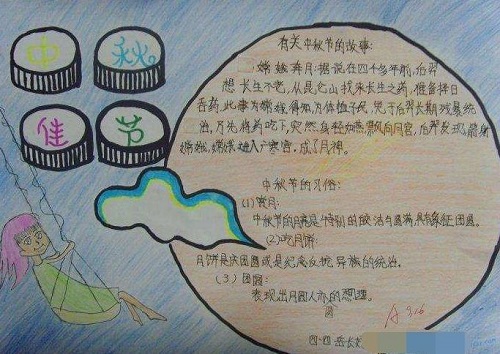 中秋
佳节
有关中秋节的故事:
嫦娥奔月:据说在四千多年前,后羿
想长生不老,从昆仑山找来长生之药,准备择日
吞药,此事为嫦娥得知,为体恤子民,免于后羿长期残暴统
治,乃先将药吃下,突然身轻如燕飘向月宫,后羿发现
嫦娥,嫦娥进入广寒宫,成了月神。
中秋节的习俗:
(1)赏月:
中秋节的月亮是特别的皎洁与圆满,具有象征团圆。
(2)吃月饼:
月饼是庆团圆或是纪念反抗异族的统治。
(3)团圆:
表现出月圆人亦的理。
圆
A 9.16
四.四 岳长